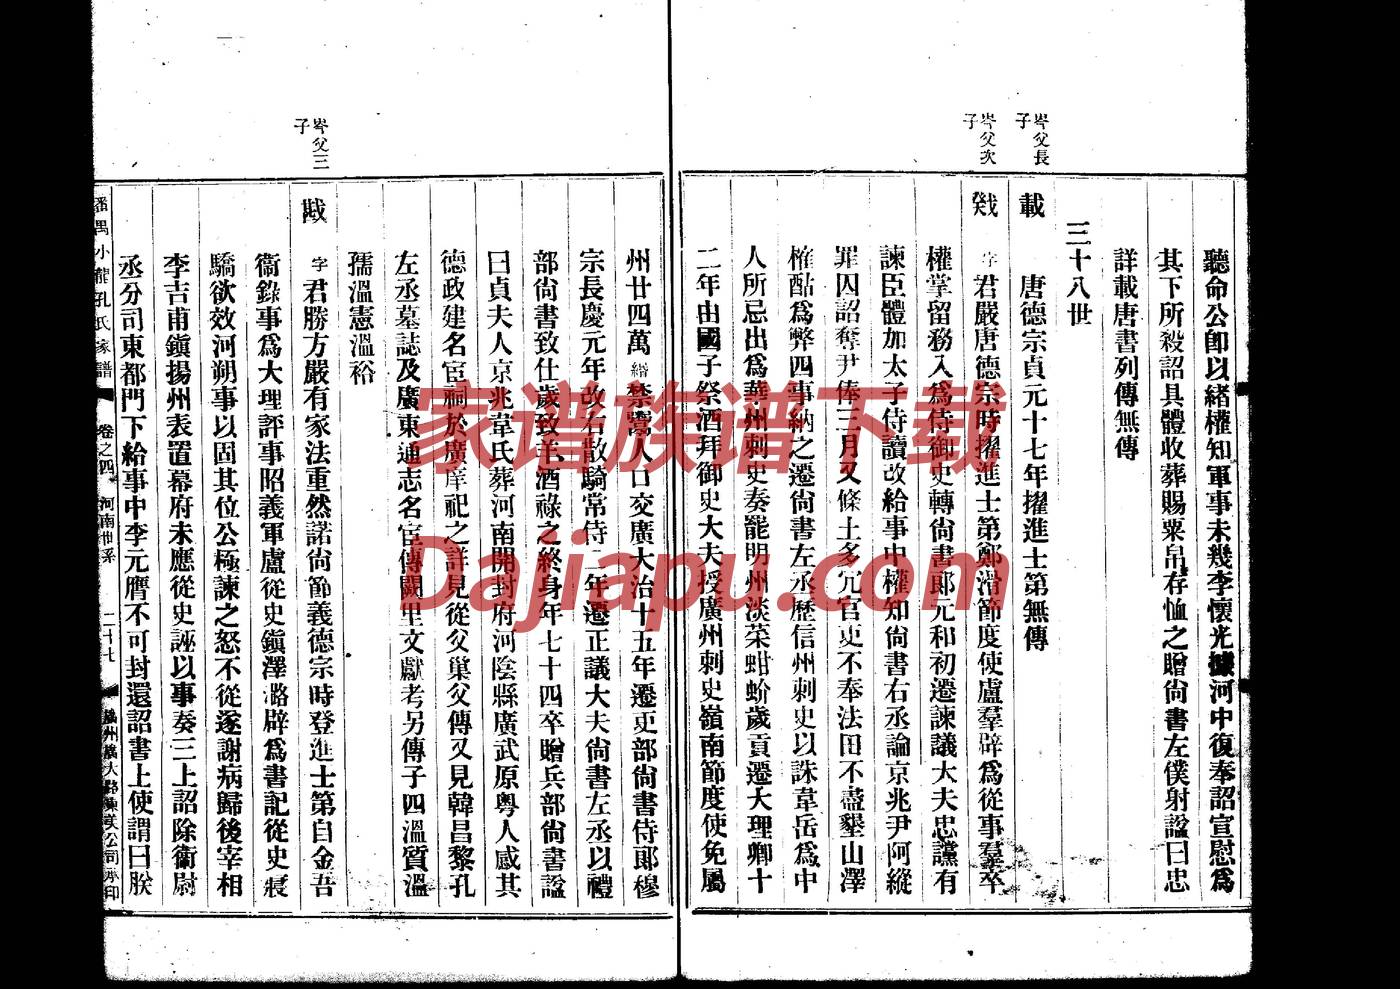 聽命公卽以緒權知軍事未幾李懷光據河中復奉詔宣慰爲
其下所殺詔具體收葬賜粟帛存恤之贈尙書左僕射諡曰忠
詳載唐書列傳無傳
三十八世
岑父長子
載 唐德宗貞元十七年擢進士第無傳
岑父次子
戣 字君嚴唐德宗時擢進士第鄭滑節度使盧羣辟爲從事羣卒
權掌留務入爲侍御史轉尙書郞元和初遷諫議大夫忠讜有
諫臣體加太子侍讀改給事中權知尙書右丞論京兆尹阿縱
罪囚詔奪尹俸三月又條上多冗官吏不奉法田不盡墾山澤
榷酤爲弊四事納之遷尙書左丞歷信州刺史以誅韋岳爲中
人所忌出爲華州刺史奏罷明州淡菜蚶蚧歲貢遷大理卿十
二年由國子祭酒拜御史大夫授廣州刺史嶺南節度使免屬
州廿四萬緡禁鬻人口交廣大治十五年遷吏部尙書侍郞穆
宗長慶元年改右散騎常侍二年遷正議大夫尙書左丞以禮
部尙書致仕歲致羊酒祿之終身年七十四卒贈兵部尙書諡
曰貞夫人京兆韋氏葬河南開封府河陰縣廣武原粵人感其
德政建名宦祠於廣庠祀之詳見從父巢父傳又見韓昌黎孔
左丞墓誌及廣東通志名宦傳闕里文獻考另傳子四溫質溫
孺溫憲溫裕
岑父三子
戢 字君勝方嚴有家法重然諾尙節義德宗時登進士第自金吾
衞錄事爲大理評事昭義軍盧從史鎭澤潞辟爲書記從史寢
驕欲效河朔事以固其位公極諫之怒不從遂謝病歸後宰相
李吉甫鎭揚州表置幕府未應從史誣以事奏三上詔除衞尉
丞分司東都門下給事中李元膺不可封還詔書上使謂曰朕
番禺小龍孔氏家譜 卷之四 河南世系 二十七
家谱族谱下载
Dajiapu.com